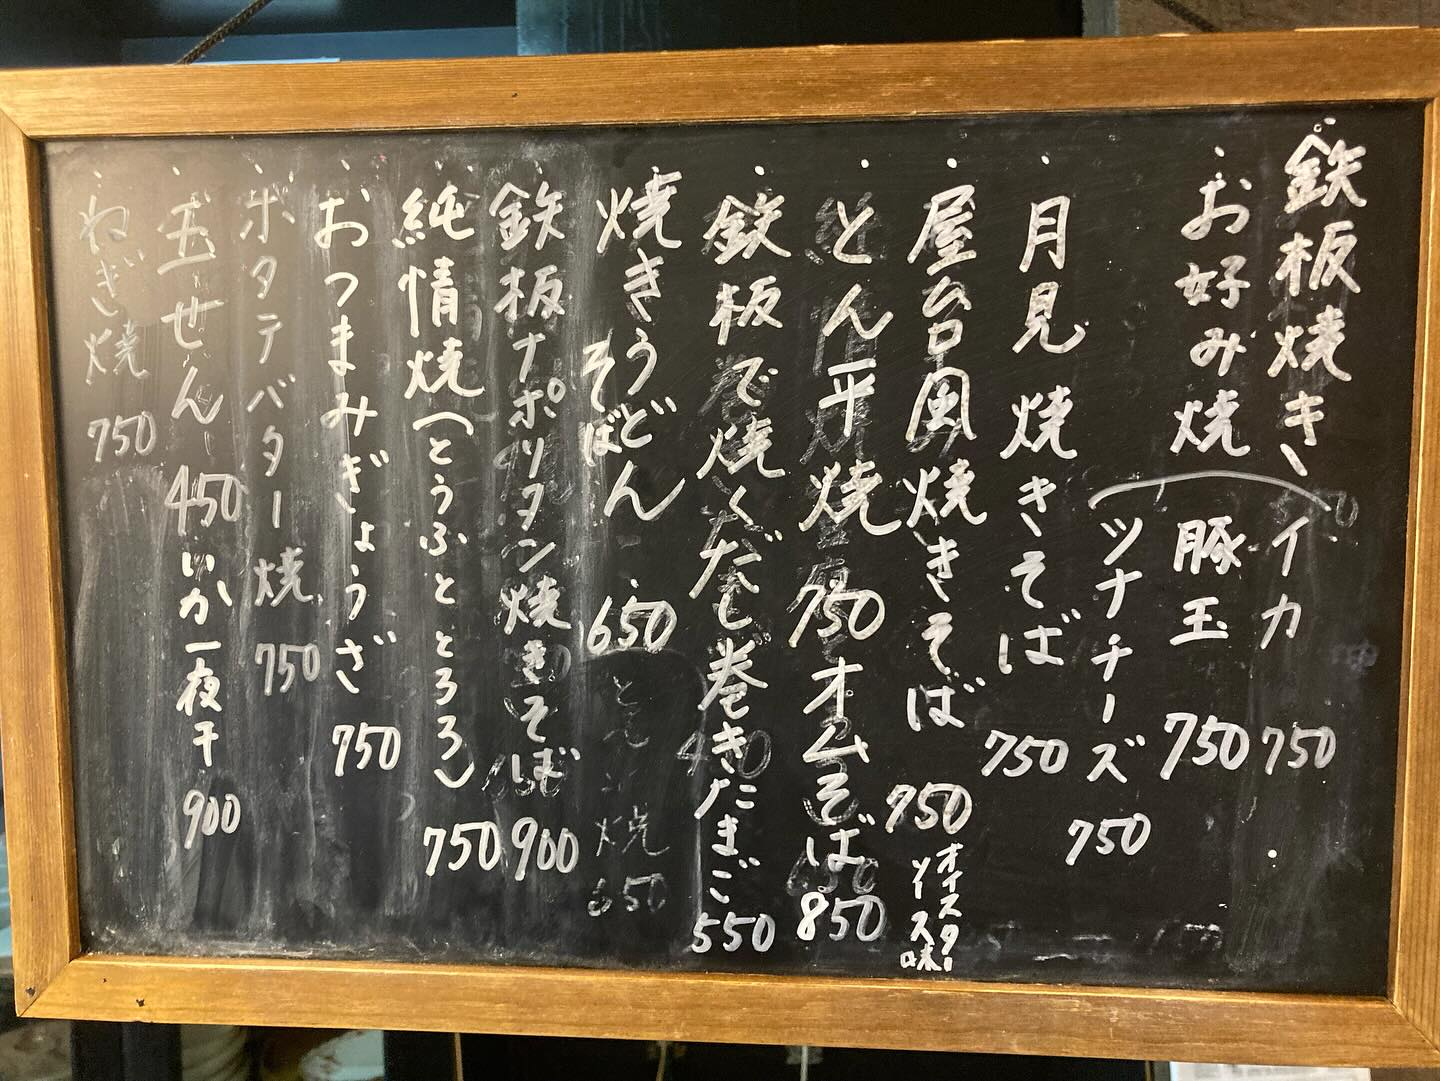 鉄板焼き
・お好み焼
イカ 750
豚玉 750
ツナチーズ 750
・月見焼きそば 750
・屋台風焼きそば 750
オイスター
ソース味
・とん平焼 750 オムそば 850
・鉄板で焼くだし巻きたまご 550
・焼きうどん
そば
650
・鉄板ナポリタン焼きそば 900
・純情焼(とうふととろろ) 750
・おつまみぎょうざ 750
・ポタテバター焼 750
・玉せん 450 いか一夜干 900
・ねぎ焼 750